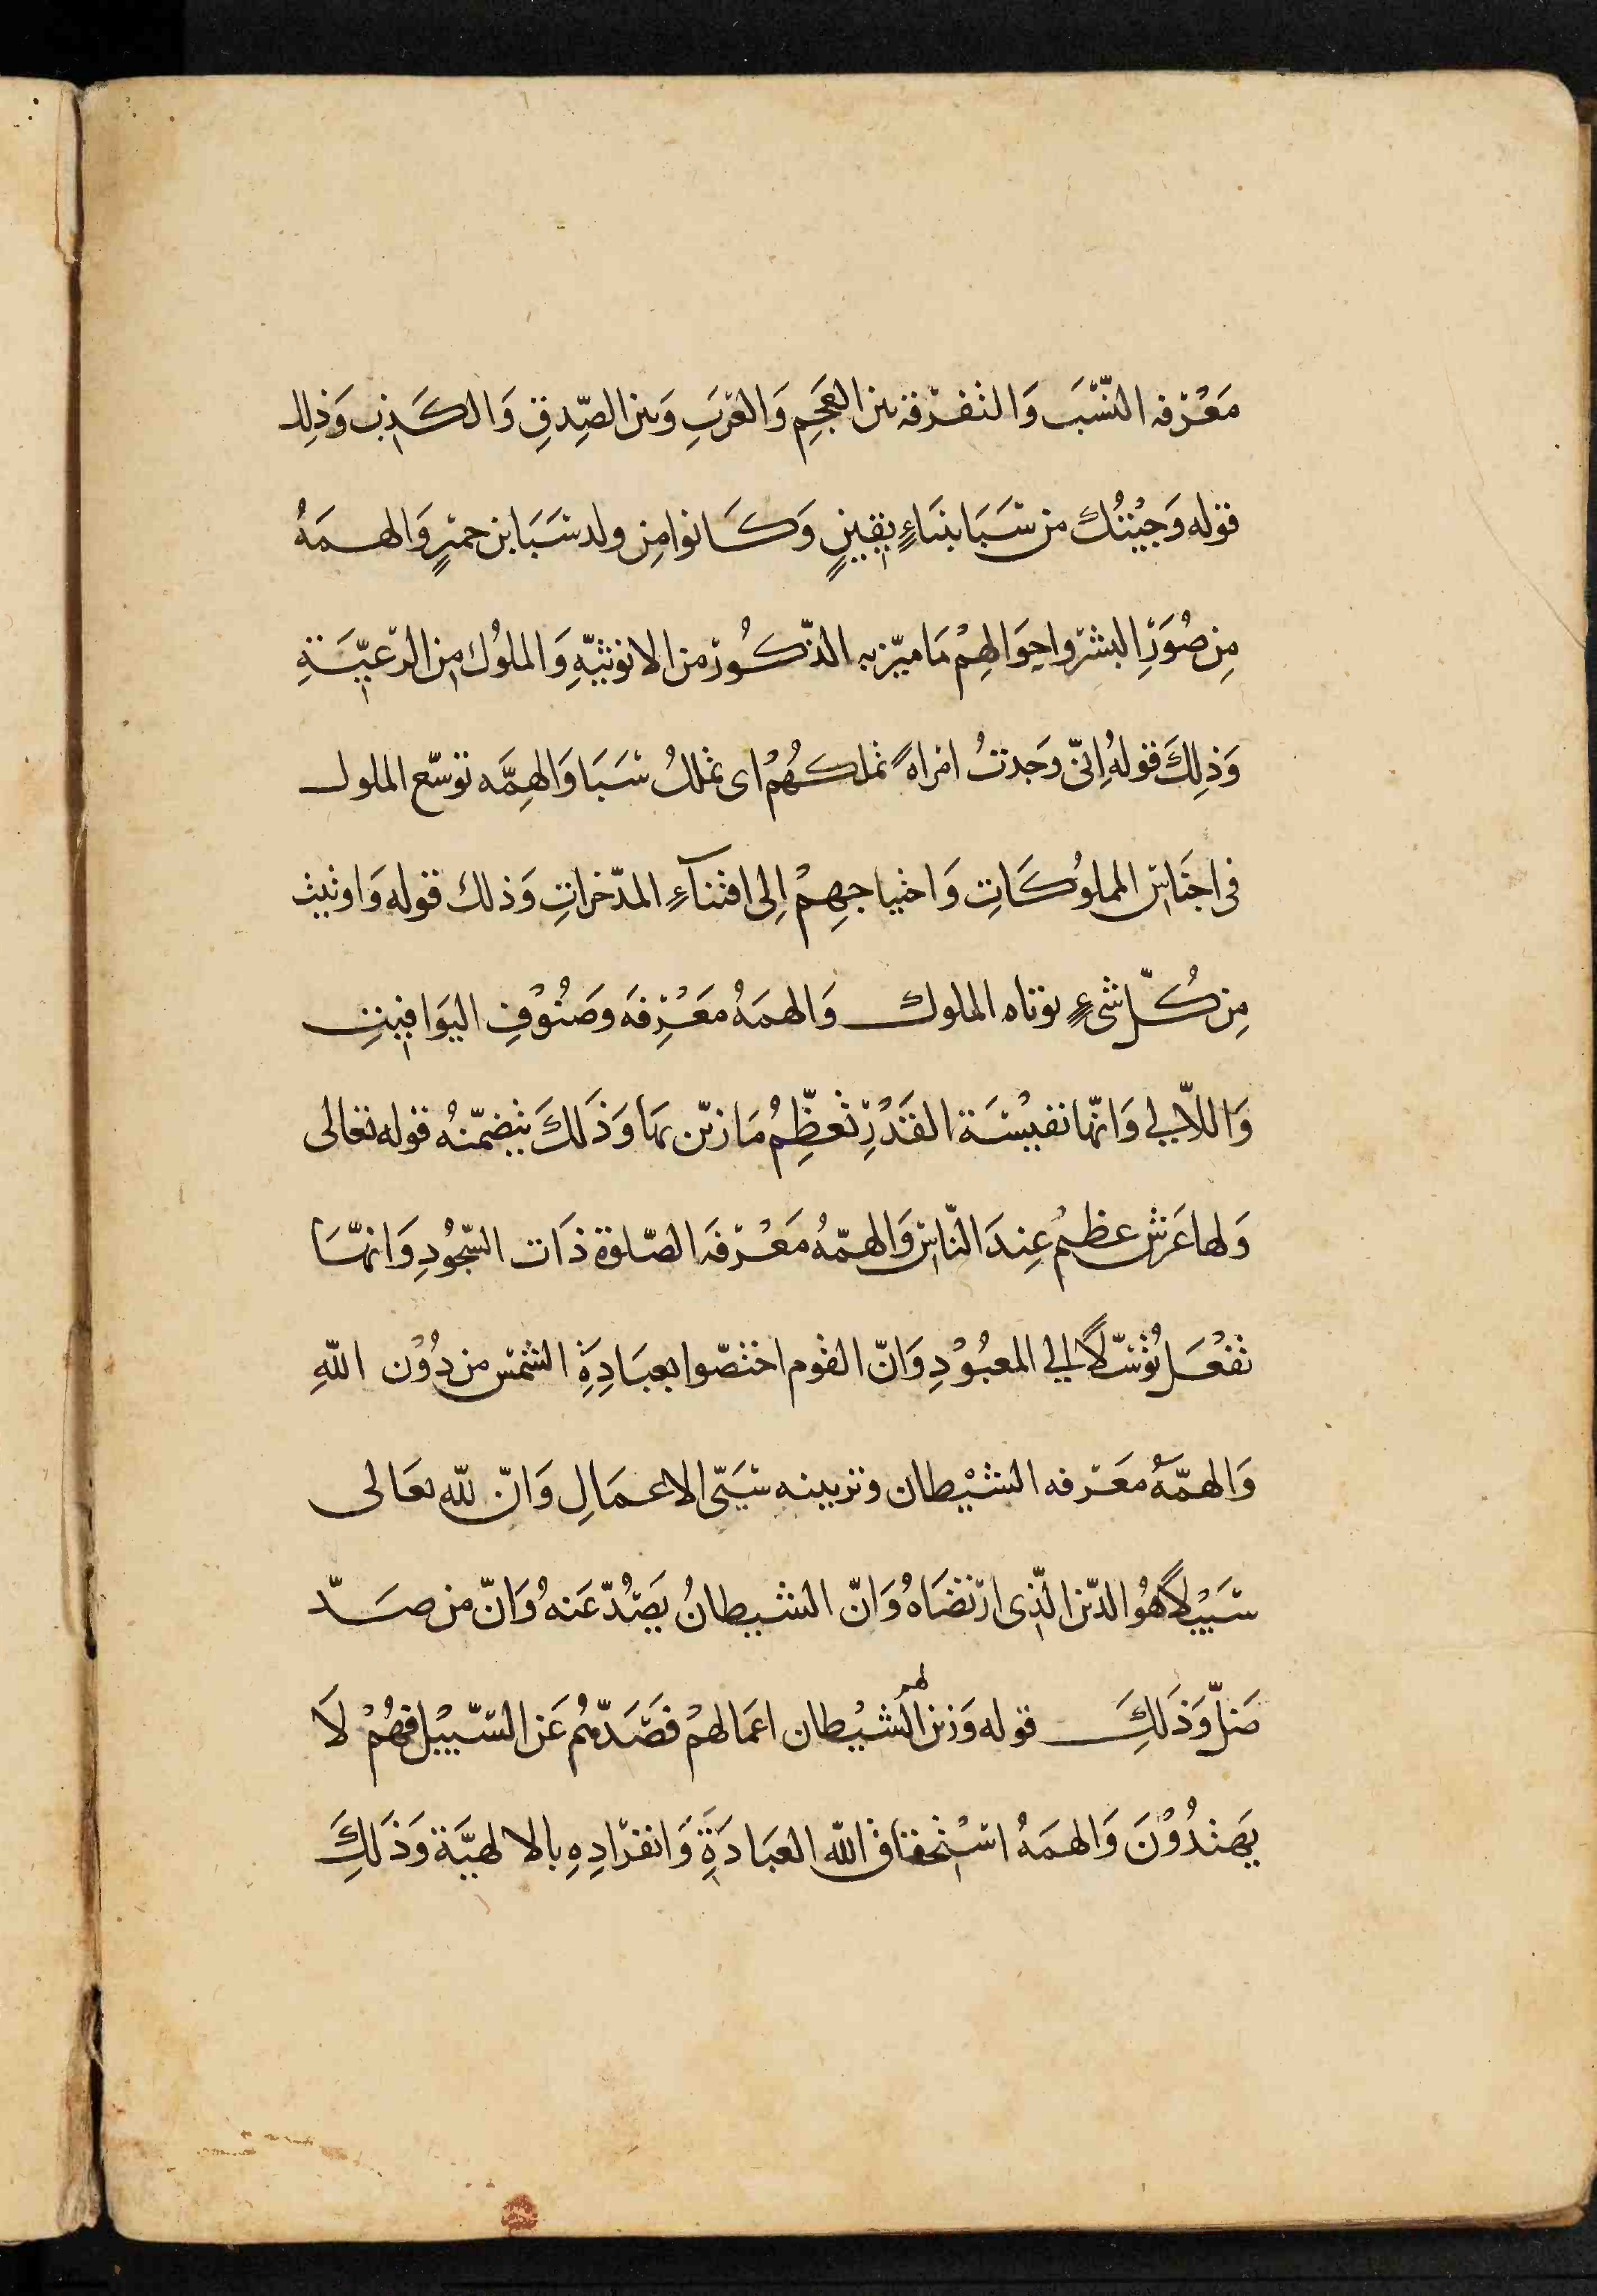 مَعْرفه النّسَب وَالتفرقه بين العَجَمِ وَالعَرَبِ وَبين الصِّدقِ وَالكَذِبِ وَذلِك
قوله وَجِيْتُكَ من سَبَا بنَبَاءٍ يقينٍ وَكَانوا مِن ولد سَبَا بن حميرٍ وَالهمَهُ
مِن صُوَرِ البشر واحِوَالهِمْ مَا ميّز به الذّكُور من الانوثيّهِ وَالملوُك مِن الرّعيّةِ
وَذلِكَ قولهُ اِنّى وَجدتُ امْراهً تملكهُمْ اى تملكُ سَبَا وَالهِمَّه توسّع الملوك
فى اجنَاسِ المملوُكَاتِ وَاحتياجهِمْ اِلى اقتنآءِ المدّخراتِ وَذلك قوله وَاوتيت
مِن كُلّ شىءٍ يوتاه الملوك وَالهمَهُ مَعْرِفَه وصَنُوْفِ اليَوَاقيتِ
وَاللآلي وَانّها نفيْسَة القَدْرِ تُعظِّمُ مَا زيّن بهَا وَذَلكَ يتضمّنهُ قوله تعالى
وَلها عَرش عظيمُ عِندَ النّاس وَالهمّهُ مَعْرفَه الصّلوة ذَات السّجُودِ وَانهّا
تفْعَل تُوسّلًا الي المعبُوْدِ وَانّ القوم اختصّوا بعبَادِةِ الشمس من دُوْن اللهِ
وَالهمّهُ معَرفه الشيْطان وتزيينه سَيّى الاعمَالِ وَانّ لله تعَالى
سَبيْلًا هُو الدّين الّذِى ارْتضَاهُ وَانّ الشيطانُ يَصُدّ عَنهُ وَانّ من صَدّ
ضَلّ وَذَلكَِ قوله وَزين لهم الشيْطان اعمَالهمْ فصَدّهُم عَن السّبيْل فهُمْ لَا
يَهتدُوْنَ وَالهمَهُ اسْتِحقاق الله العبَادَةِ وَانفرَادِهِ بالالهيَّة وَذَلكَِ